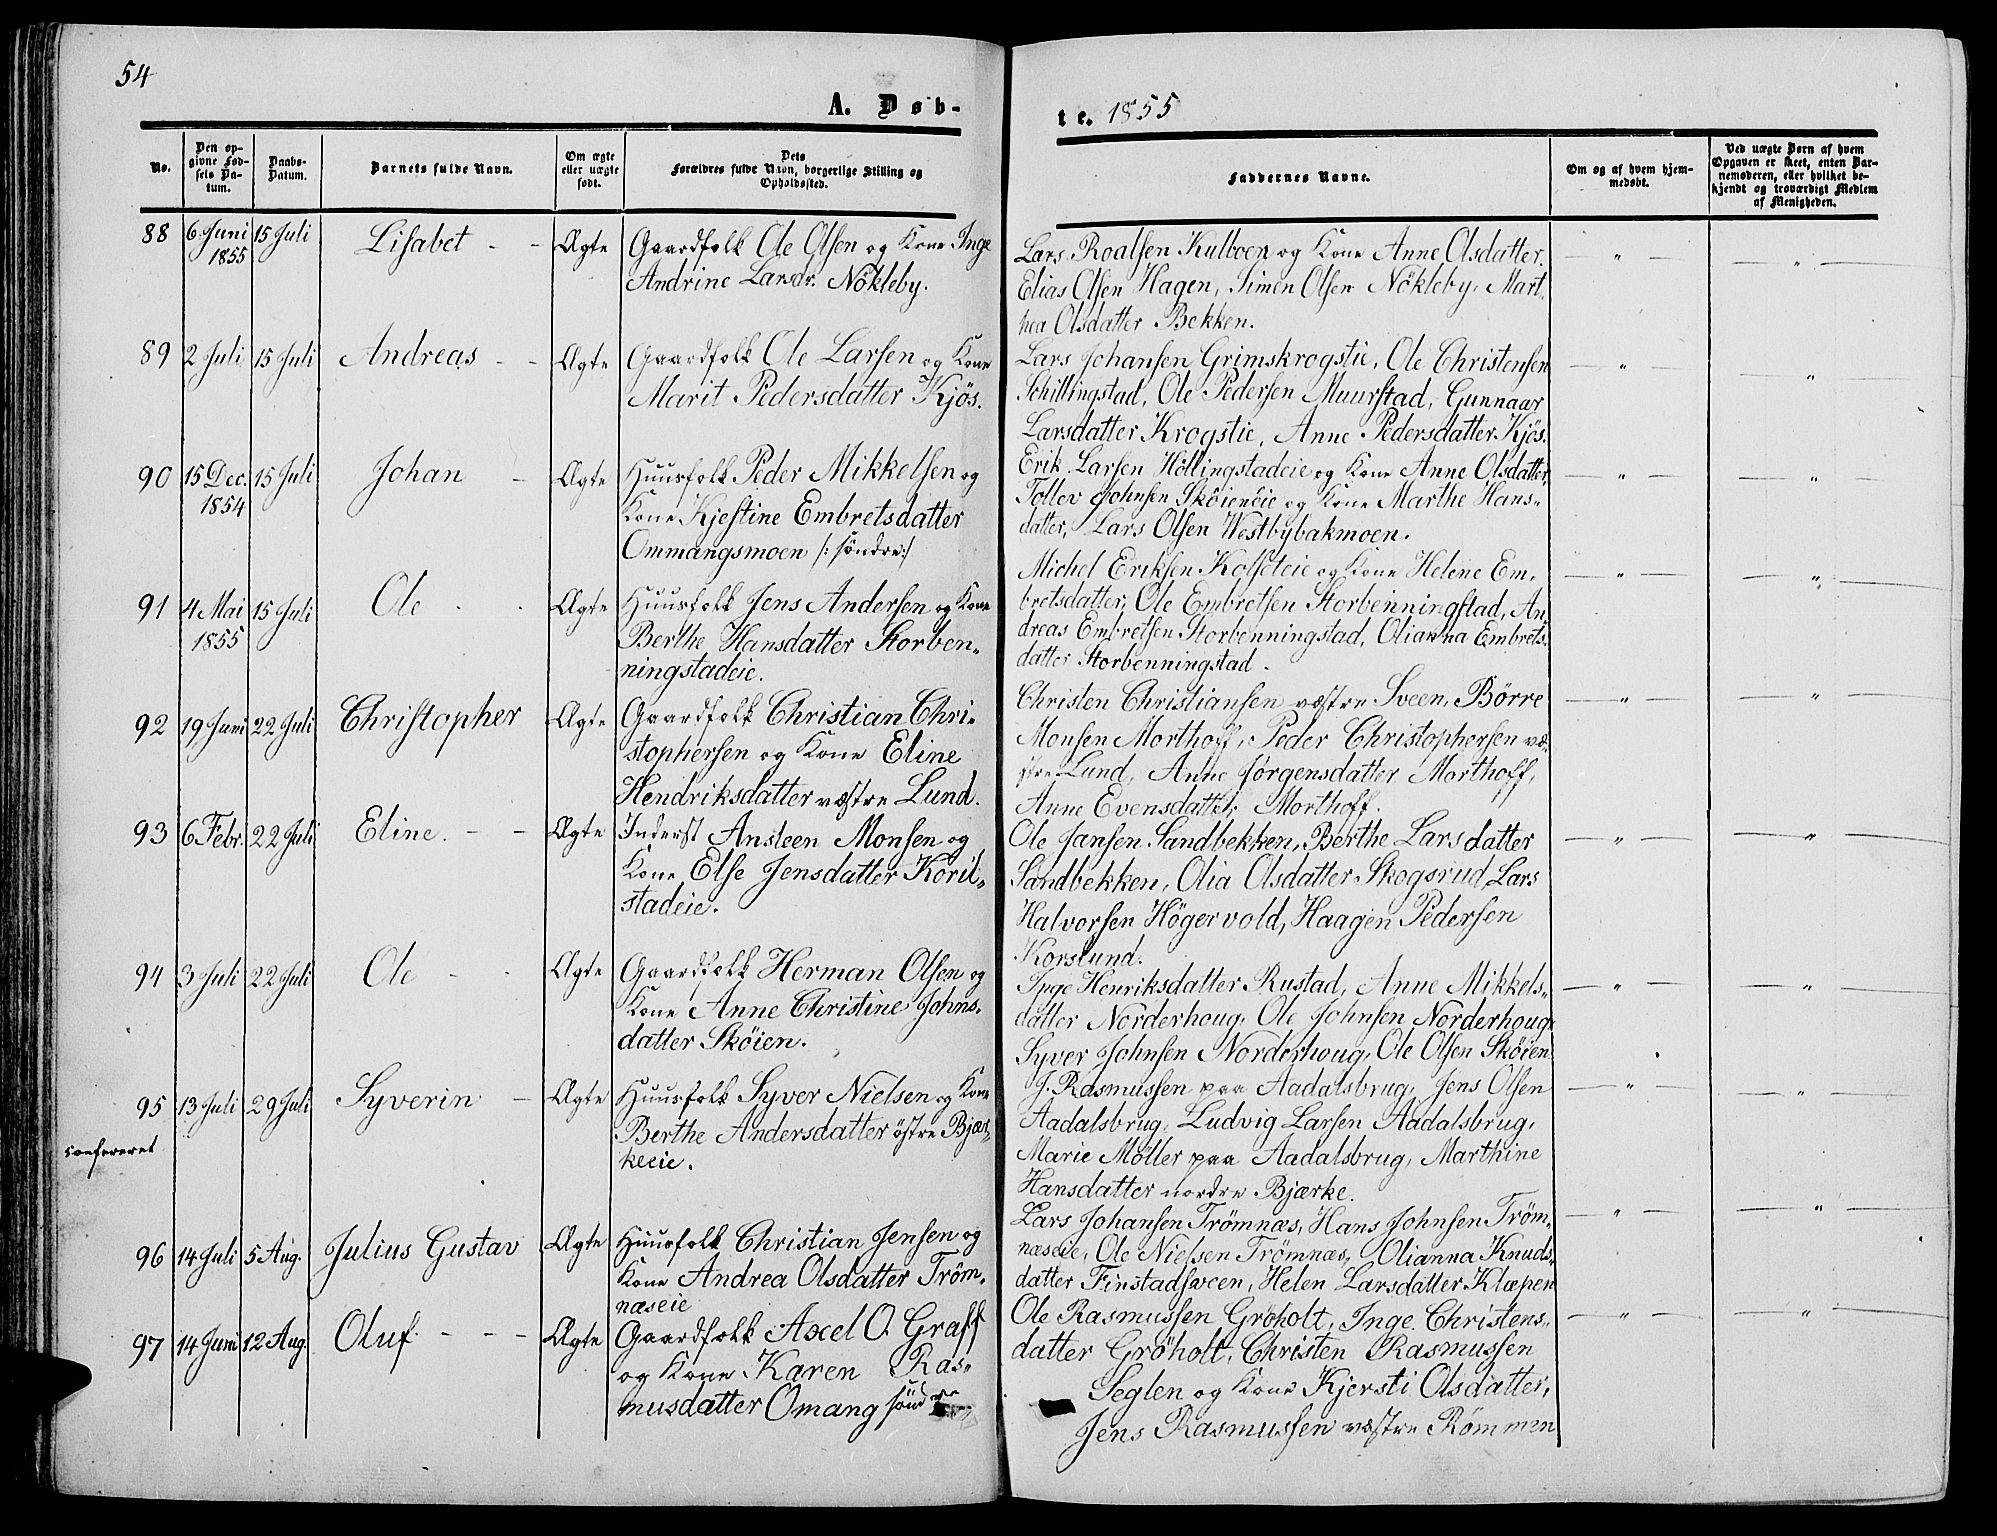 54
A. Døb-
No.
Den op-
givne Fød-
sels Da-
tum.
Daabs-
Datum.
Barnets fulde Navn.
Om ægte
eller uægte
født.
Dets
Forældres fulde Navn, borgerlige Stilling og
Opholdssted.
88 6 Juni 15 Juli Lisabet - - Ægte Gaardfolk Ole Olsen og Kone Inge
1855 Andrine Larsdr. Nökleby.
89 2 Juli 15 Juli Andreas - - Ægte Gaardfolk Ole Larsen og Kone
Marit Pedersdatter Kjös.
90 15 Dec. 15 Juli Johan - Ægte Huusfolk Peder Mikkelsen og
1854 Kone Kjestine Embretsdatter
Ommangsmoen /: söndre:/
91 4 Mai 15 Juli Ole - - Ægte Huusfolk Jens Andersen og Kone
1855 Berthe Hansdatter Storben-
ningstadeie.
92 19 Juni 22 Juli Christopher Ægte Gaardfolk Christian Chri-
stophersen og Kone Eline
Hendriksdatter væstre Lund.
93 6 Febr. 22 Juli Eline. - - Ægte Inderst Ansteen Monsen og
Kone Else Jensdatter Koril-
stadeie.
94 3 Juli 22 Juli Ole - - Ægte Gaardfolk Herman Olsen og
Kone Anne Christine Johns-
datter Sköien.
95 13 Juli 29 Juli Syverin - Ægte Huusfolk Syver Nielsen og Kone
confereret Berthe Andersdatter östre Bjær-
keeie.
96 14 Juli 5 Aug. Julius Gustav Ægte Huusfolk Christian Jensen og
Kone Andrea Olsdatter Tröm-
næseie
97 14 Juni 12 Aug. Oluf. - - - Ægte Gaardfolk Axel O. Graff
og Kone Karen Ras-
musdatter Omang söndre
te. 1855
Faddernes Navne.
Om og af hvem hjem-
medøbt.
Ved uægte Børn af hvem
Opgaven er skeet, enten Bar-
nemoderen, eller hvilket be-
kjendt og troværdigt Medlem
af Menigheden.
Lars Roalsen Kulboen og Kone Anne Olsdatter. — " — — " —
Elias Olsen Hagen, Simen Olsen Nökleby, Mart-
hea Olsdatter Bekken.
Lars Johansen Grimskrogstie, Ole Christensen — " — — " —
Schillingstad, Ole Pedersen Muurstad, Gunnaar
Larsdatter Krogstie, Anne Pedersdatter Kjös.
Erik Larsen Höllingstadeie og Kone Anne Olsdatter, — " — — " —
Tollev Johnsen Sköieneie og Kone Marthe Hans-
datter, Lars Olsen Westbybakmoen.
Michel Eriksen Kolseteie og Kone Helene Em- — " — — " —
bretsdatter, Ole Embretsen Storbenningstad, An-
dreas Embretsen Storbenningstad, Olianna Embrets-
datter Storbenningstad.
Christen Christiansen væstre Sveen, Börre — " — — " —
Monsen Morthoff, Peder Christophersen væ-
stre Lund, Anne Jörgensdatter Morthoff,
Anne Evensdatter, Morthoff.
Ole Jansen Sandbekken, Berthe Larsdatter — " — — " —
Sandbekken, Olia Olsdatter Skogsrud, Lars
Halvorsen Högervold, Haagen Pedersen
Korslund.
Inge Henriksdatter Rustad, Anne Mikkels- — " — — " —
datter Norderhoug, Ole Johnsen Norderhoug,
Syver Johnsen Norderhoug, Ole Olsen Sköien.
J. Rasmussen paa Aadalsbrug, Jens Olsen — " — — " —
Aadalsbrug, Ludvig Larsen Aadalsbrug,
Marie Möller paa Aadalsbrug, Marthine
Hansdatter nordre Bjærke.
Lars Johansen Trömnæs, Hans Johnsen Tröm- — " — — " —
næseie, Ole Nielsen Trömnæs, Olianna Knuds-
datter Finstadsveen, Helen Larsdatter Klæpen
Ole Rasmussen Gröholt, Inge Christens- — " — — " —
datter Gröholt, Christen Rasmussen
Seglen og Kone Kjersti Olsdatter,
Jens Rasmussen væstre Römmen